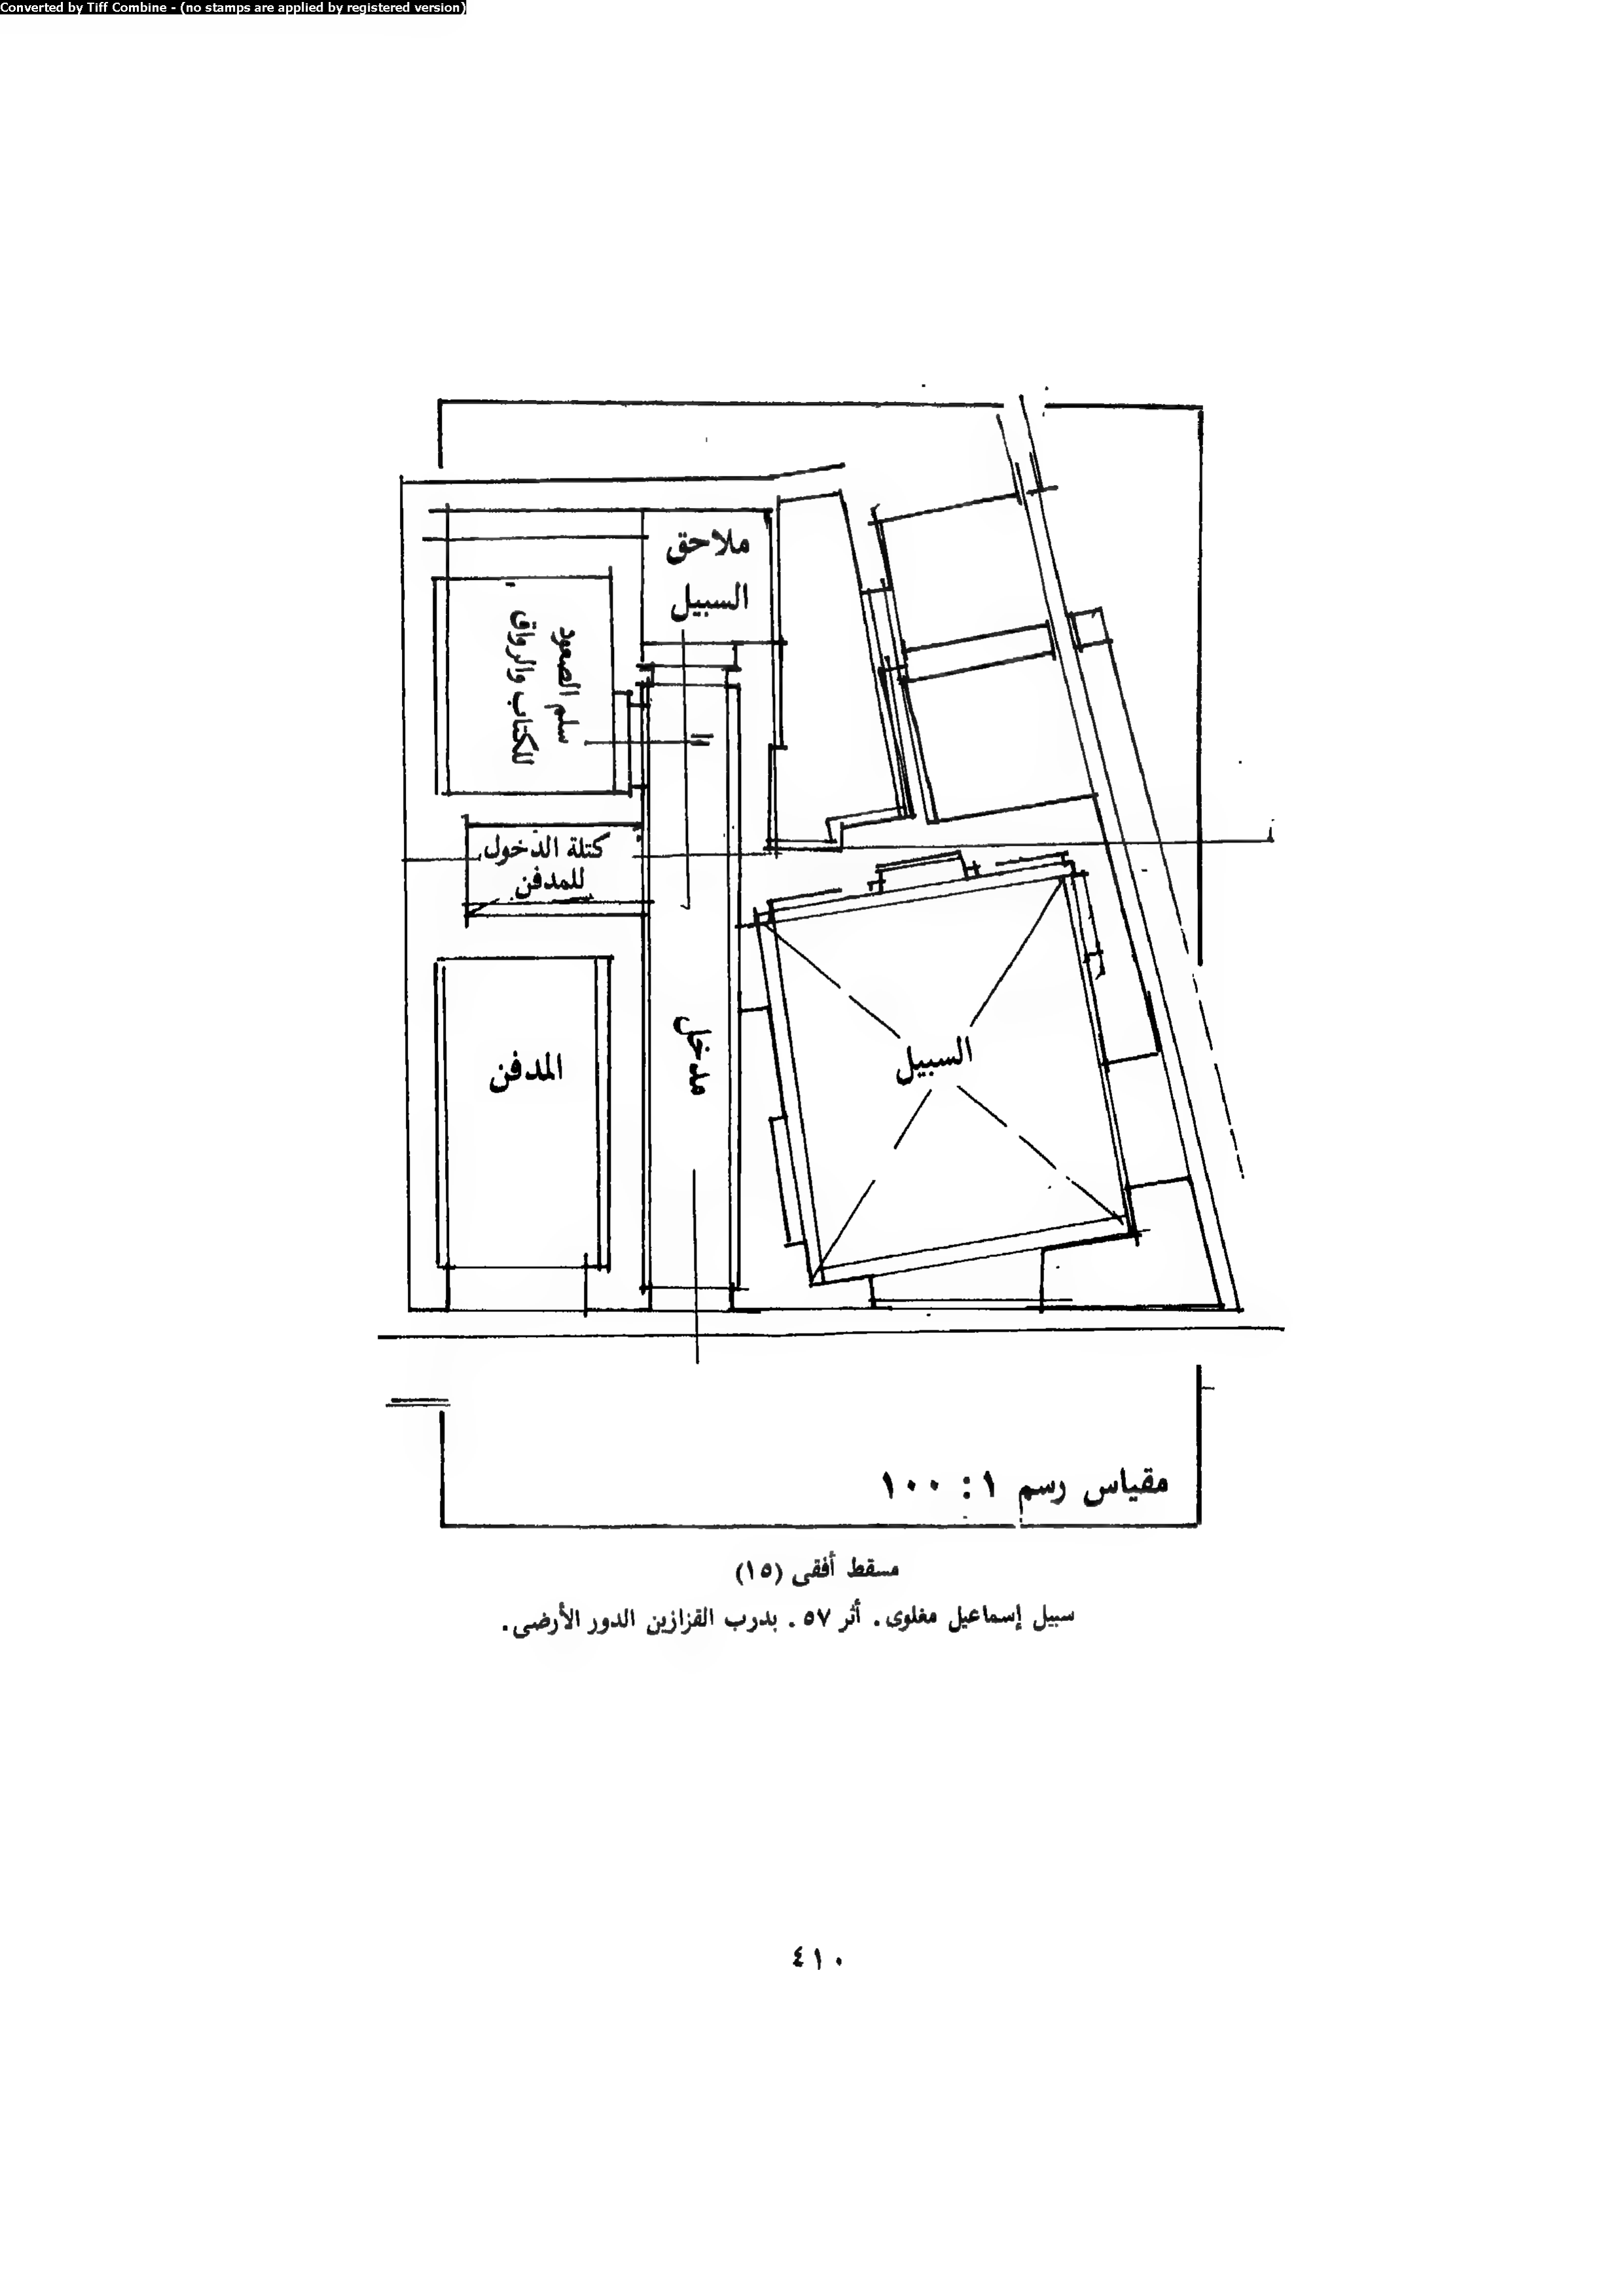 Converted by Tiff Combine - (no stamps are applied by registered version)
ملاحق
السبيل
سلم الصعود
للكتاب والرواق
كتلة الدخول
للمدفن
المدفن
مدخل
السبيل
مقياس رسم ١ : ١٠٠
مسقط أفقى (١٥)
سبيل إسماعيل مغلوى . أثر ٥٧ . بدرب القزازين الدور الأرضى .
٤١٠